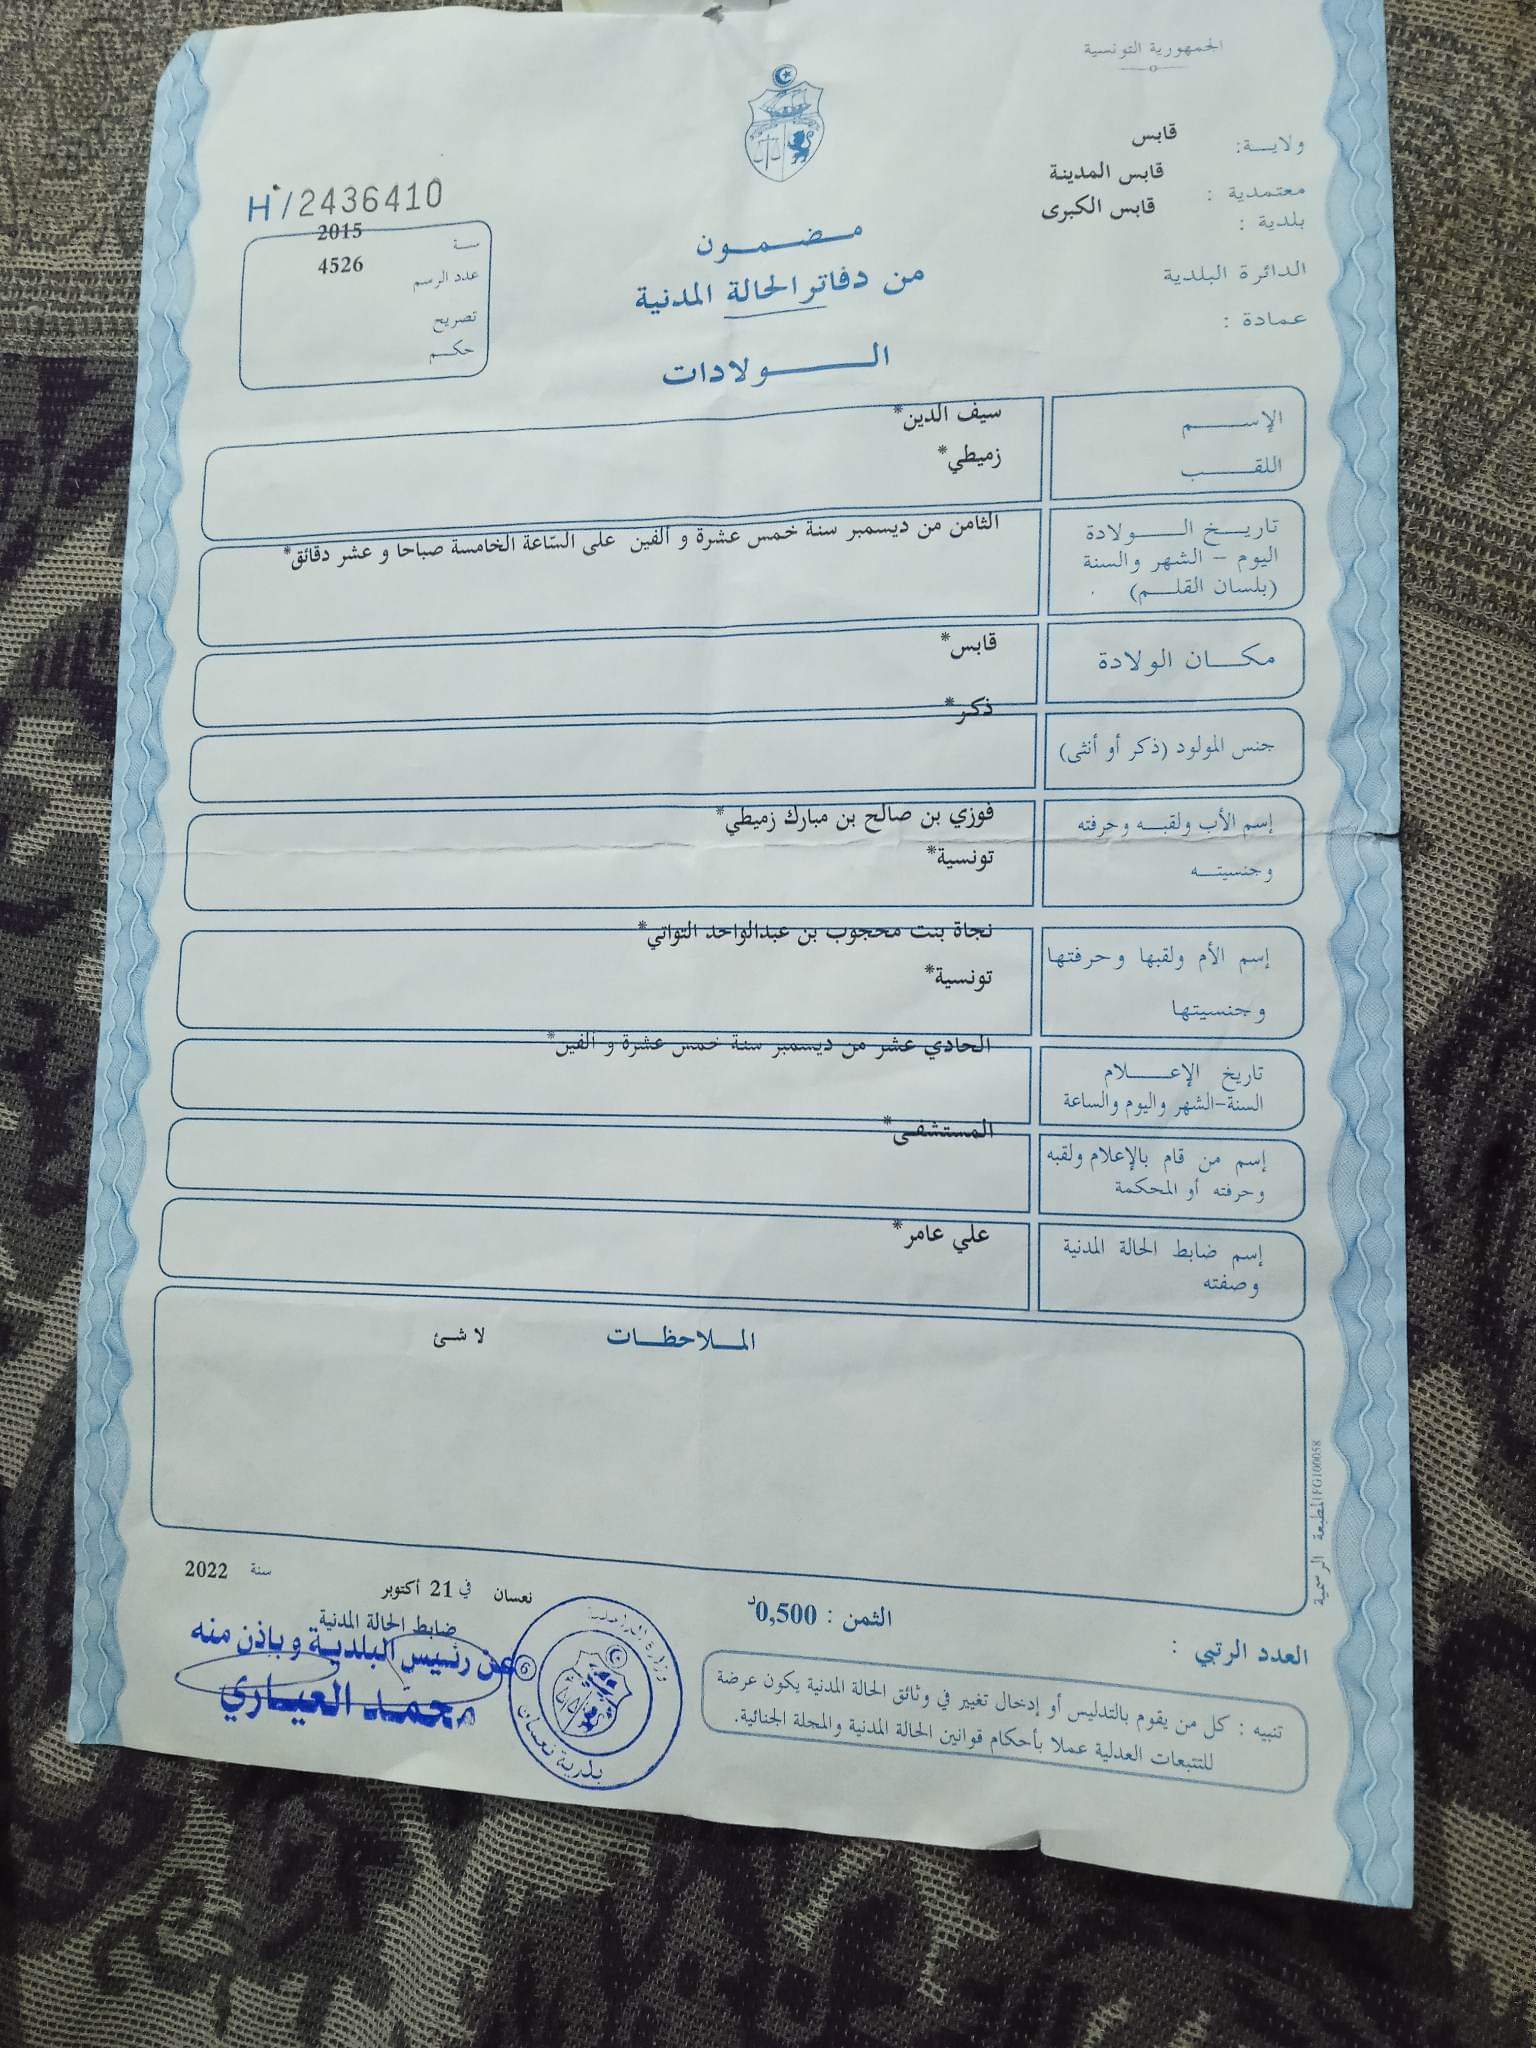 الجمهورية التونسية
ولاية: قابس
معتمدية : قابس المدينة
بلدية : قابس الكبرى
الدائرة البلدية
عمادة :
H/2436410
سنة 2015
عدد الرسم 4526
تصريح
حكم
مضمون
من دفاتر الحالة المدنية
الولادات
الإسم سيف الدين*
اللقب زميطي*
تاريخ الولادة
اليوم - الشهر والسنة
(بلسان القلم)
الثامن من ديسمبر سنة خمس عشرة و ألفين على السّاعة الخامسة صباحا و عشر دقائق*
مكان الولادة قابس*
جنس المولود (ذكر أو أنثى) ذكر*
إسم الأب ولقبه وحرفته فوزي بن صالح بن مبارك زميطي*
وجنسيته تونسية*
إسم الأم ولقبها وحرفتها نجاة بنت محجوب بن عبدالواحد التواتي*
وجنسيتها تونسية*
تاريخ الإعلام الحادي عشر من ديسمبر سنة خمس عشرة و ألفين*
السنة-الشهر واليوم والساعة
إسم من قام بالإعلام ولقبه المستشفى*
وحرفته أو المحكمة
إسم ضابط الحالة المدنية علي عامر*
وصفته
الملاحظات لا شئ
المطبعة الرسمية IFG100058
نعسان في 21 أكتوبر سنة 2022
ضابط الحالة المدنية
عن رئيس البلدية وبإذن منه
محمد العياري
بلدية نعسان
6
الثمن : 0,500د
العدد الرتبي :
تنبيه : كل من يقوم بالتدليس أو إدخال تغيير في وثائق الحالة المدنية يكون عرضة
للتتبعات العدلية عملا بأحكام قوانين الحالة المدنية والمجلة الجنائية.